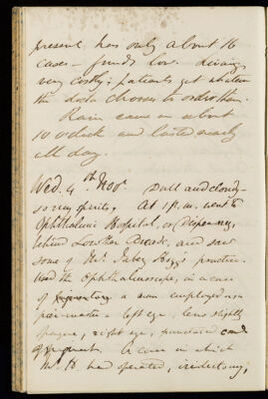 present has only about 16
cases - funds low. Living
very costly; patients get whatever
the doctor chooses to order them.
Rain came on about
10 o'clock and lasted nearly
all day.
Wed. 4th. Novr. Dull and cloudy -
so my spirits. At 1 p.m. went to
Ophthalmic Hospital, or Dispensary,
behind Lowther Arcade, and saw
some of Mr. Jabez Hogg's practice.
Used the Ophthalmoscope, in a case
of a man employed as a
maker - left eye, lens slightly
opaque, right eye,
A case in which
Mr. H. had operated, iridectomy,